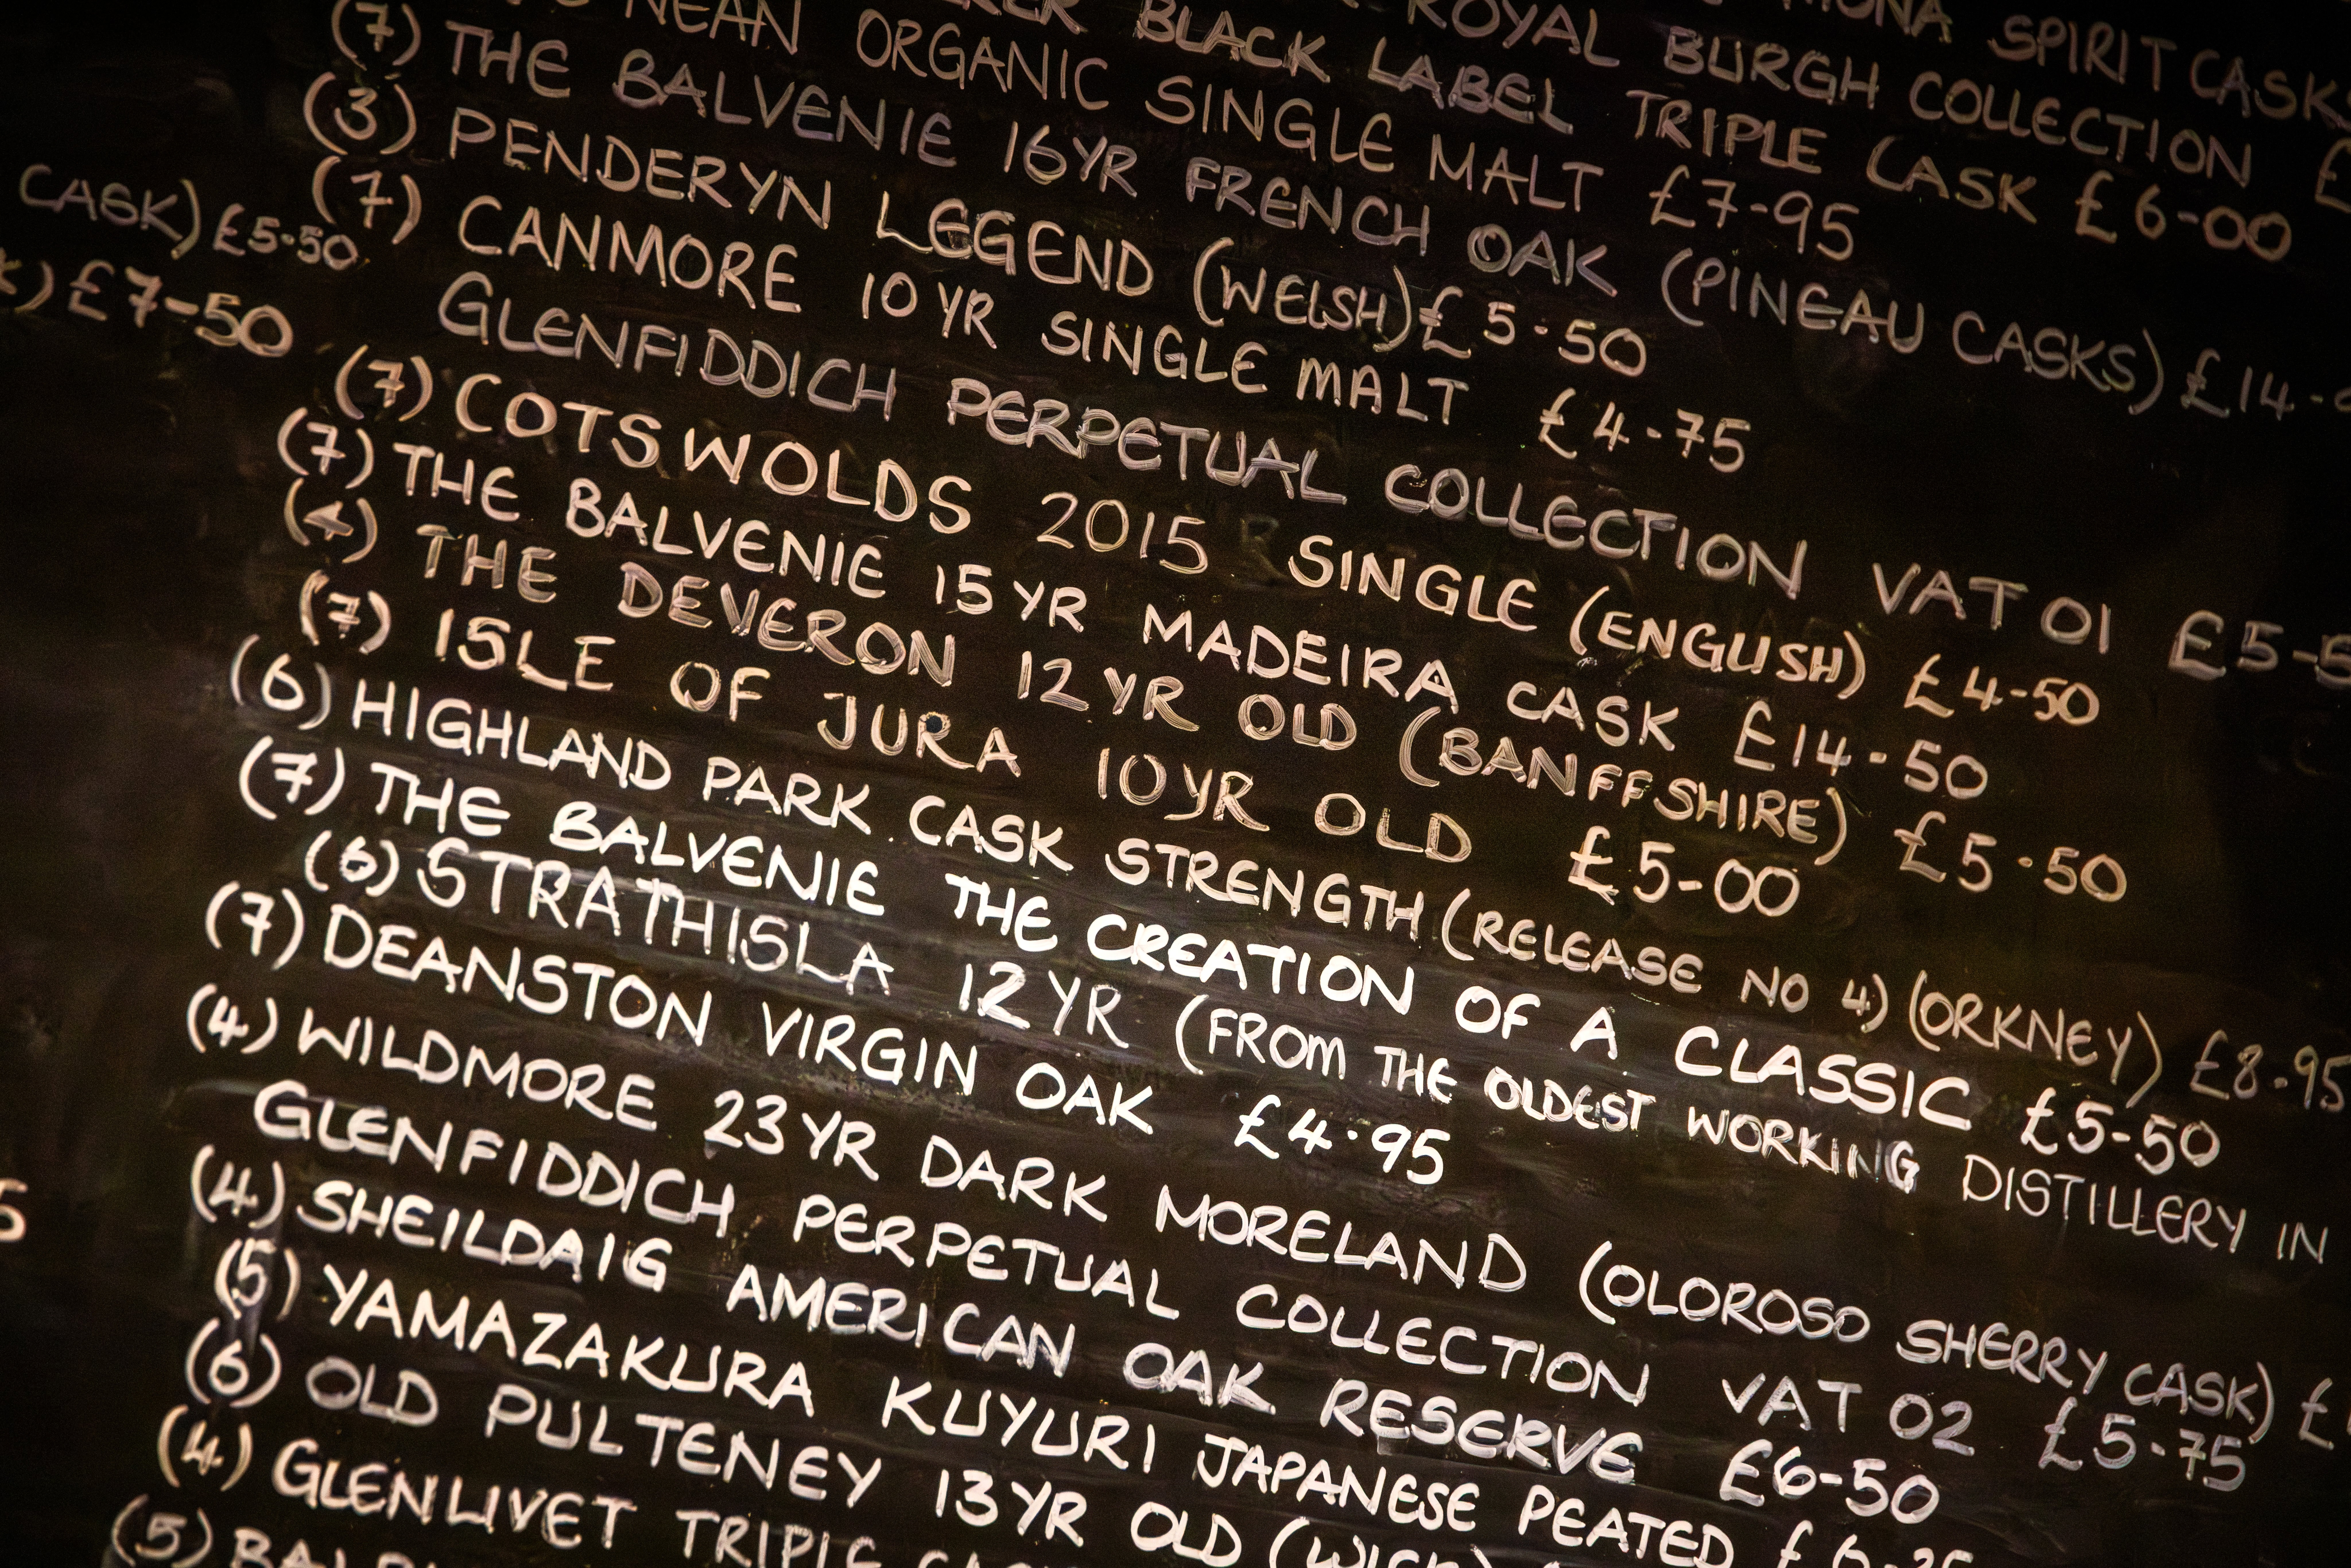 SPIRIT CASK
ROYAL BURGH COLLECTION £
BLACK LABEL TRIPLE CASK £6-00
NEAN ORGANIC SINGLE MALT £7-95
(7) THE BALVENIE 16YR FRENCH OAK (PINEAU CASKS) £14-
(3) PENDERYN LEGEND (WELSH) £5-50
(7) CANMORE 10YR SINGLE MALT £4-75
GLENFIDDICH PERPETUAL COLLECTION VAT 01 £5-5
(7) COTSWOLDS 2015 SINGLE (ENGLISH) £4-50
(7) THE BALVENIE 15YR MADEIRA CASK £14-50
(4) THE DEVERON 12YR OLD (BANFFSHIRE) £5-50
(7) ISLE OF JURA 10YR OLD £5-00
(6) HIGHLAND PARK CASK STRENGTH (RELEASE NO 4) (ORKNEY) £8-95
(7) THE BALVENIE THE CREATION OF A CLASSIC £5-50
(6) STRATHISLA 12YR (FROM THE OLDEST WORKING DISTILLERY IN
(7) DEANSTON VIRGIN OAK £4.95
(4) WILDMORE 23YR DARK MORELAND (OLOROSO SHERRY CASK) £
GLENFIDDICH PERPETUAL COLLECTION VAT 02 £5-75
(4) SHEILDAIG AMERICAN OAK RESERVE £6-50
(5) YAMAZAKURA KUYURI JAPANESE PEATED
(6) OLD PULTENEY 13YR OLD
(4) GLENLIVET TRIPLE
(5)
CASK) £5.50
) £7-50
5